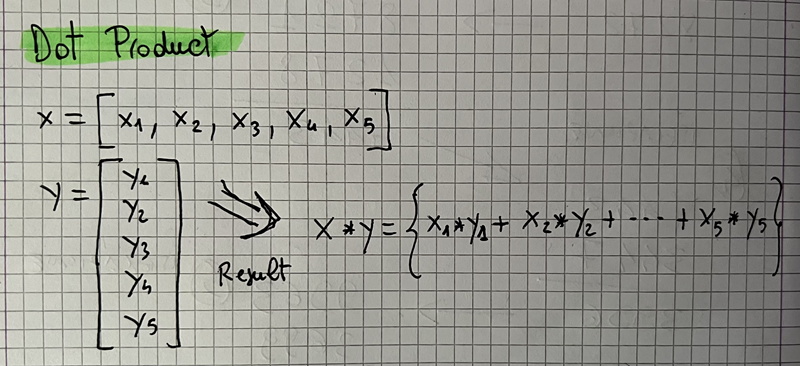 Dot Product
X = [x1, x2, x3, x4, x5]
Y = [y1
y2
y3
y4
y5]
Result
X * Y = {x1*y1 + x2*y2 + ··· + x5*y5}